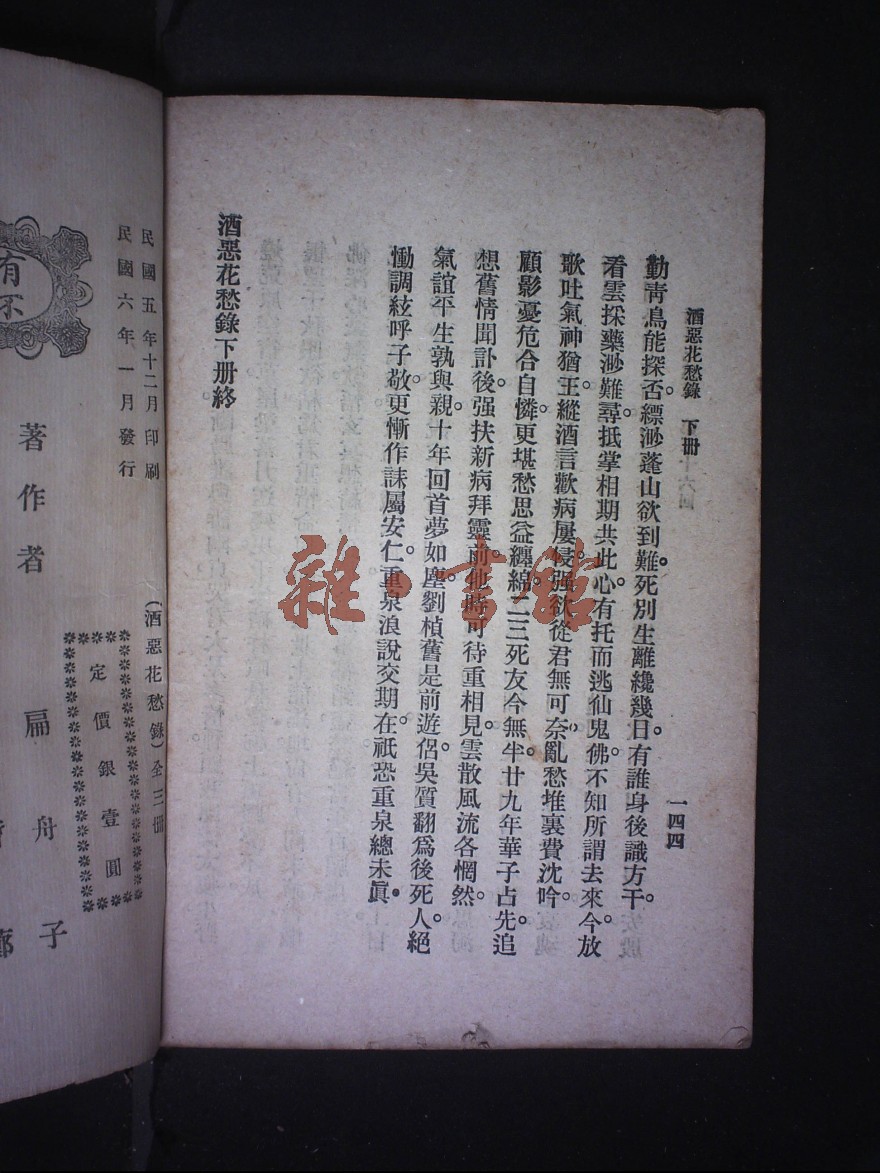 酒惡花愁錄　下册　十六回
一四四
勤靑鳥能探否。縹渺蓬山欲到難。死別生離纔幾日。有誰身後識方干。
看雲採藥渺難尋。抵掌相期共此心。有托而逃仙鬼佛。不知所謂去來今。放
歌吐氣神猶王。縱酒言歡病屢侵。强欲從君無可奈。亂愁堆裏費沈吟。
顧影憂危合自憐。更堪愁思益纏綿。二三死友今無半。廿九年華子占先。追
想舊情聞訃後。强扶新病拜靈前。他時可待重相見。雲散風流各惘然。
氣誼平生孰與親。十年回首夢如塵。劉楨舊是前遊侶。吳質翻爲後死人。絕
慟調絃呼子敬。更慚作誄屬安仁。重泉浪說交期在。祇恐重泉總未眞。
酒惡花愁錄下册終
民國五年十二月印刷
民國六年一月發行
(酒惡花愁錄)全三册
定價銀壹圓
著作者
扁舟子
有
不
雜·書館